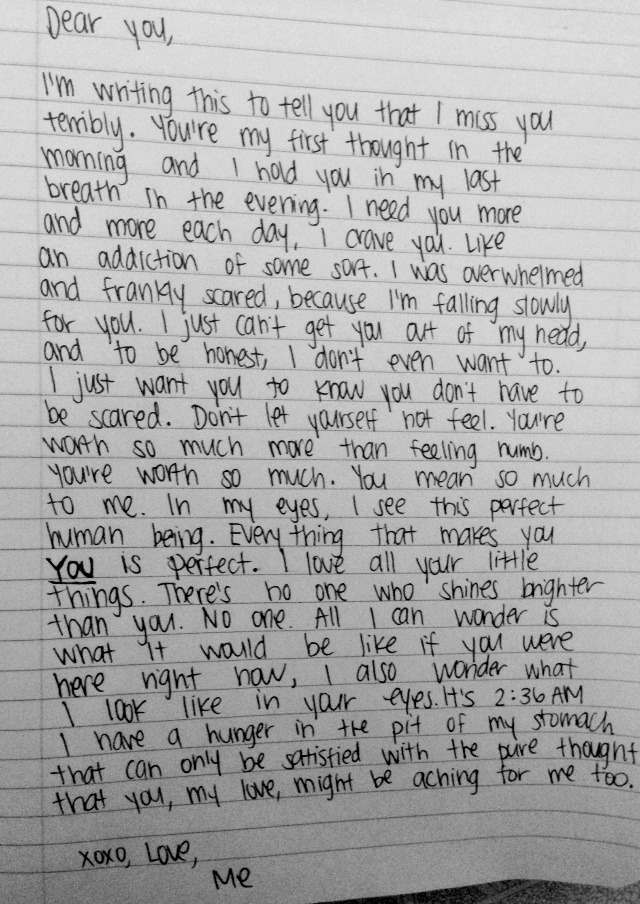 Dear you,
I'm writing this to tell you that I miss you
terribly. You're my first thought in the
morning and I hold you in my last
breath in the evening. I need you more
and more each day, I crave you. Like
an addiction of some sort. I was overwhelmed
and frankly scared, because I'm falling slowly
for you. I just can't get you out of my head,
and to be honest, I don't even want to.
I just want you to know you don't have to
be scared. Don't let yourself not feel. You're
worth so much more than feeling numb.
You're worth so much. You mean so much
to me. In my eyes, I see this perfect
human being. Every thing that makes you
YOU is perfect. I love all your little
things. There's no one who shines brighter
than you. No one. All I can wonder is
what it would be like if you were
here right now, I also wonder what
I look like in your eyes. It's 2:36 AM
I have a hunger in the pit of my stomach
that can only be satisfied with the pure thought
that you, my love, might be aching for me too.
xoxo, Love,
Me